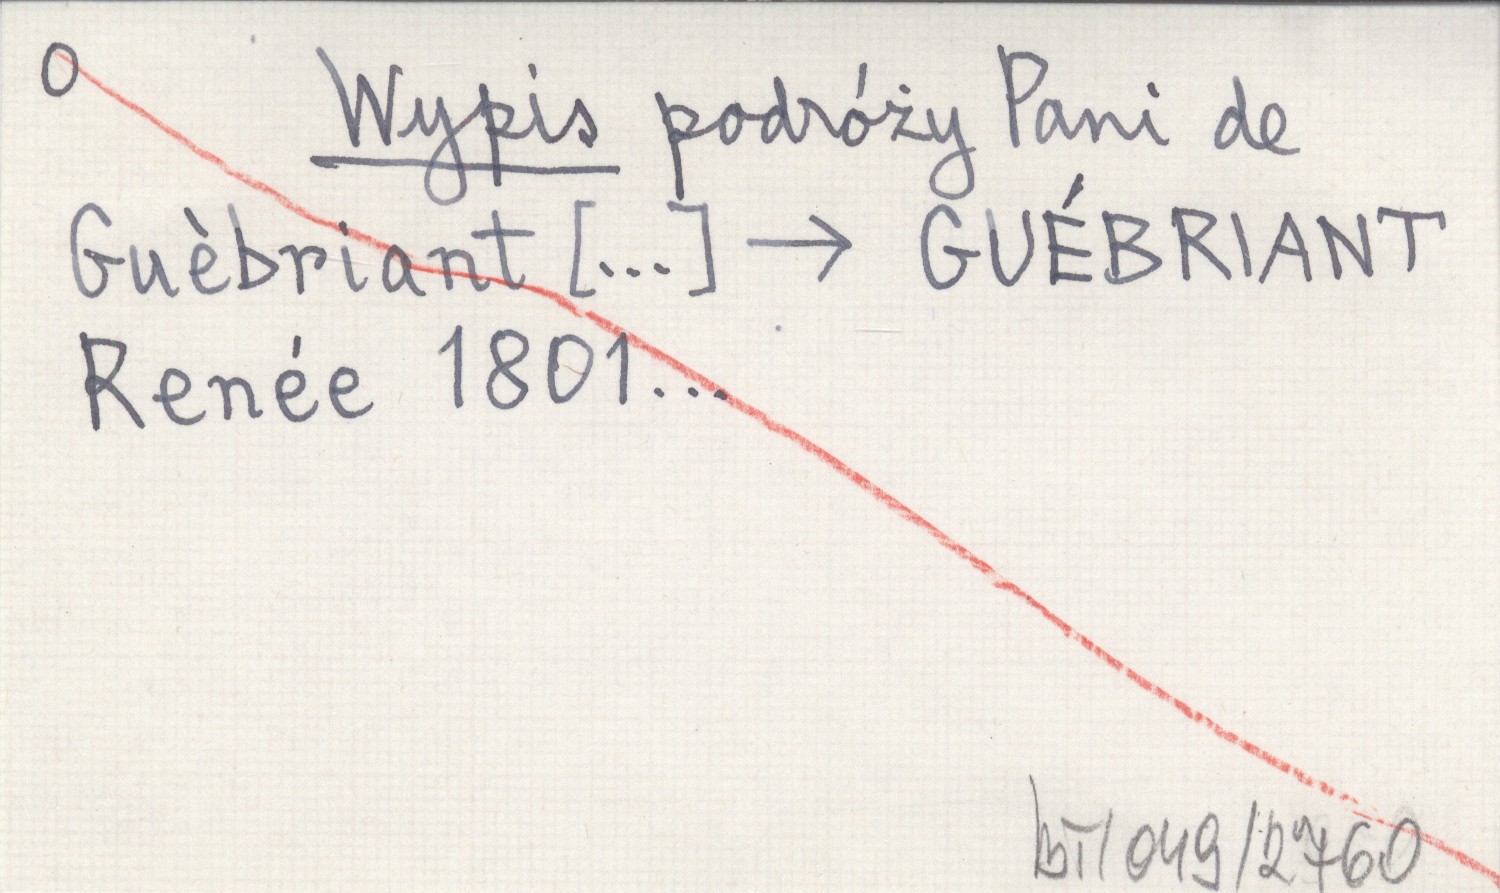 O
Wypis podróży Pani de
Guèbriant [...] → GUÉBRIANT
Renée 1801...
bT/049/2760